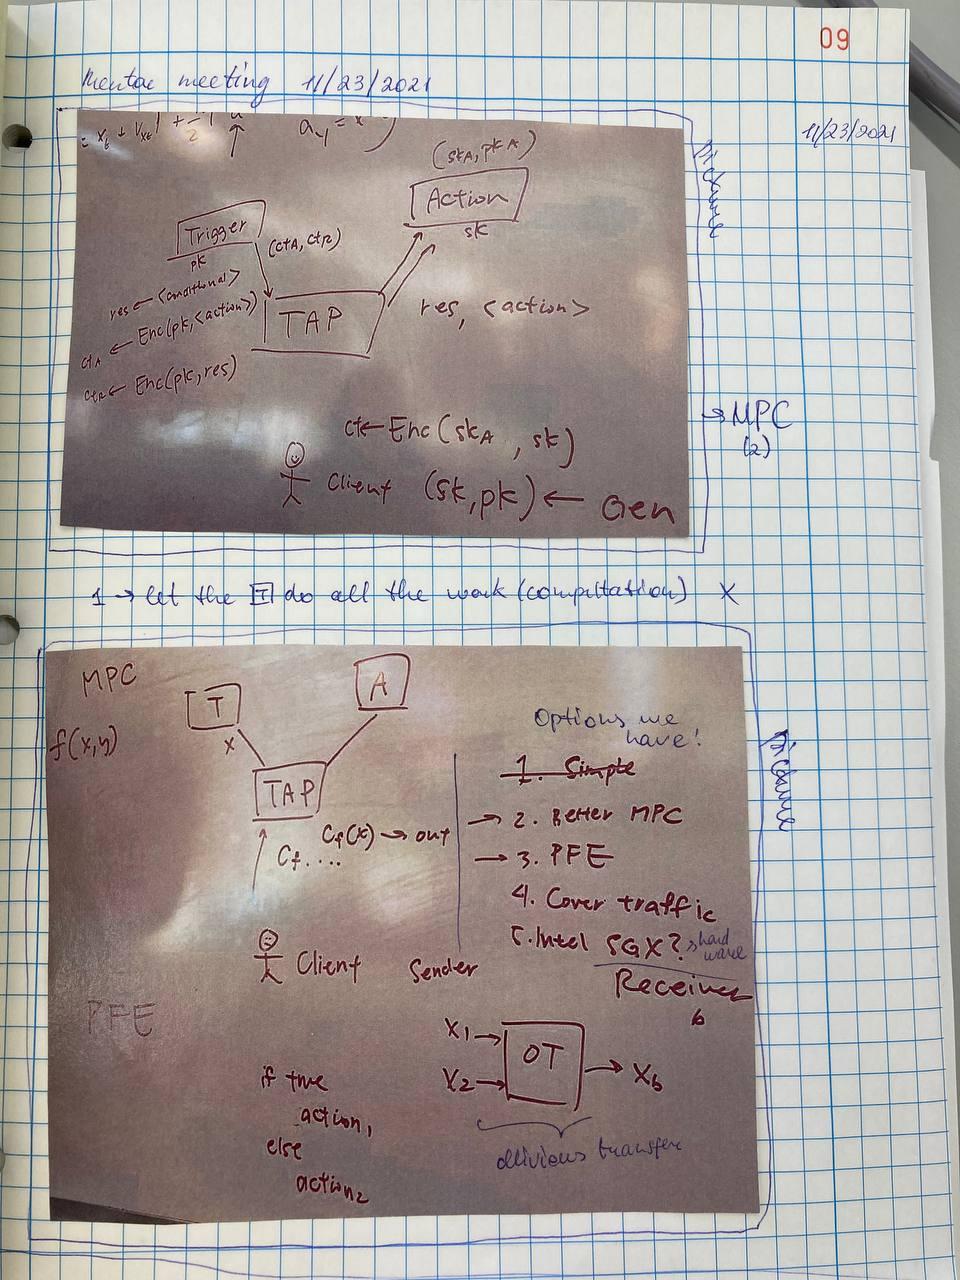 09
meeting 11/23/2021
11/23/2021
(skA, pkA)
Action
sk
Trigger
pk
(ctA, ctR)
res ← <conditional>
ctA ← Enc(pk, <action>)
ctR ← Enc(pk, res)
TAP
res, <action>
ct ← Enc(skA, sk)
Client (sk, pk) ← Gen
→ MPC
(2)
1 → let the do all the work (computation) X
MPC
T
A
f(x,y)
x
TAP
Cf(x) → out
Cf....
Client
Options we
have!
1. Simple
→ 2. Better MPC
→ 3. PFE
4. Cover traffic
5. Intel SGX? → hard
ware
Sender
Receiver
b
PFE
X1 →
X2 →
OT
→ Xb
oblivious transfer
if true
action1
else
action2